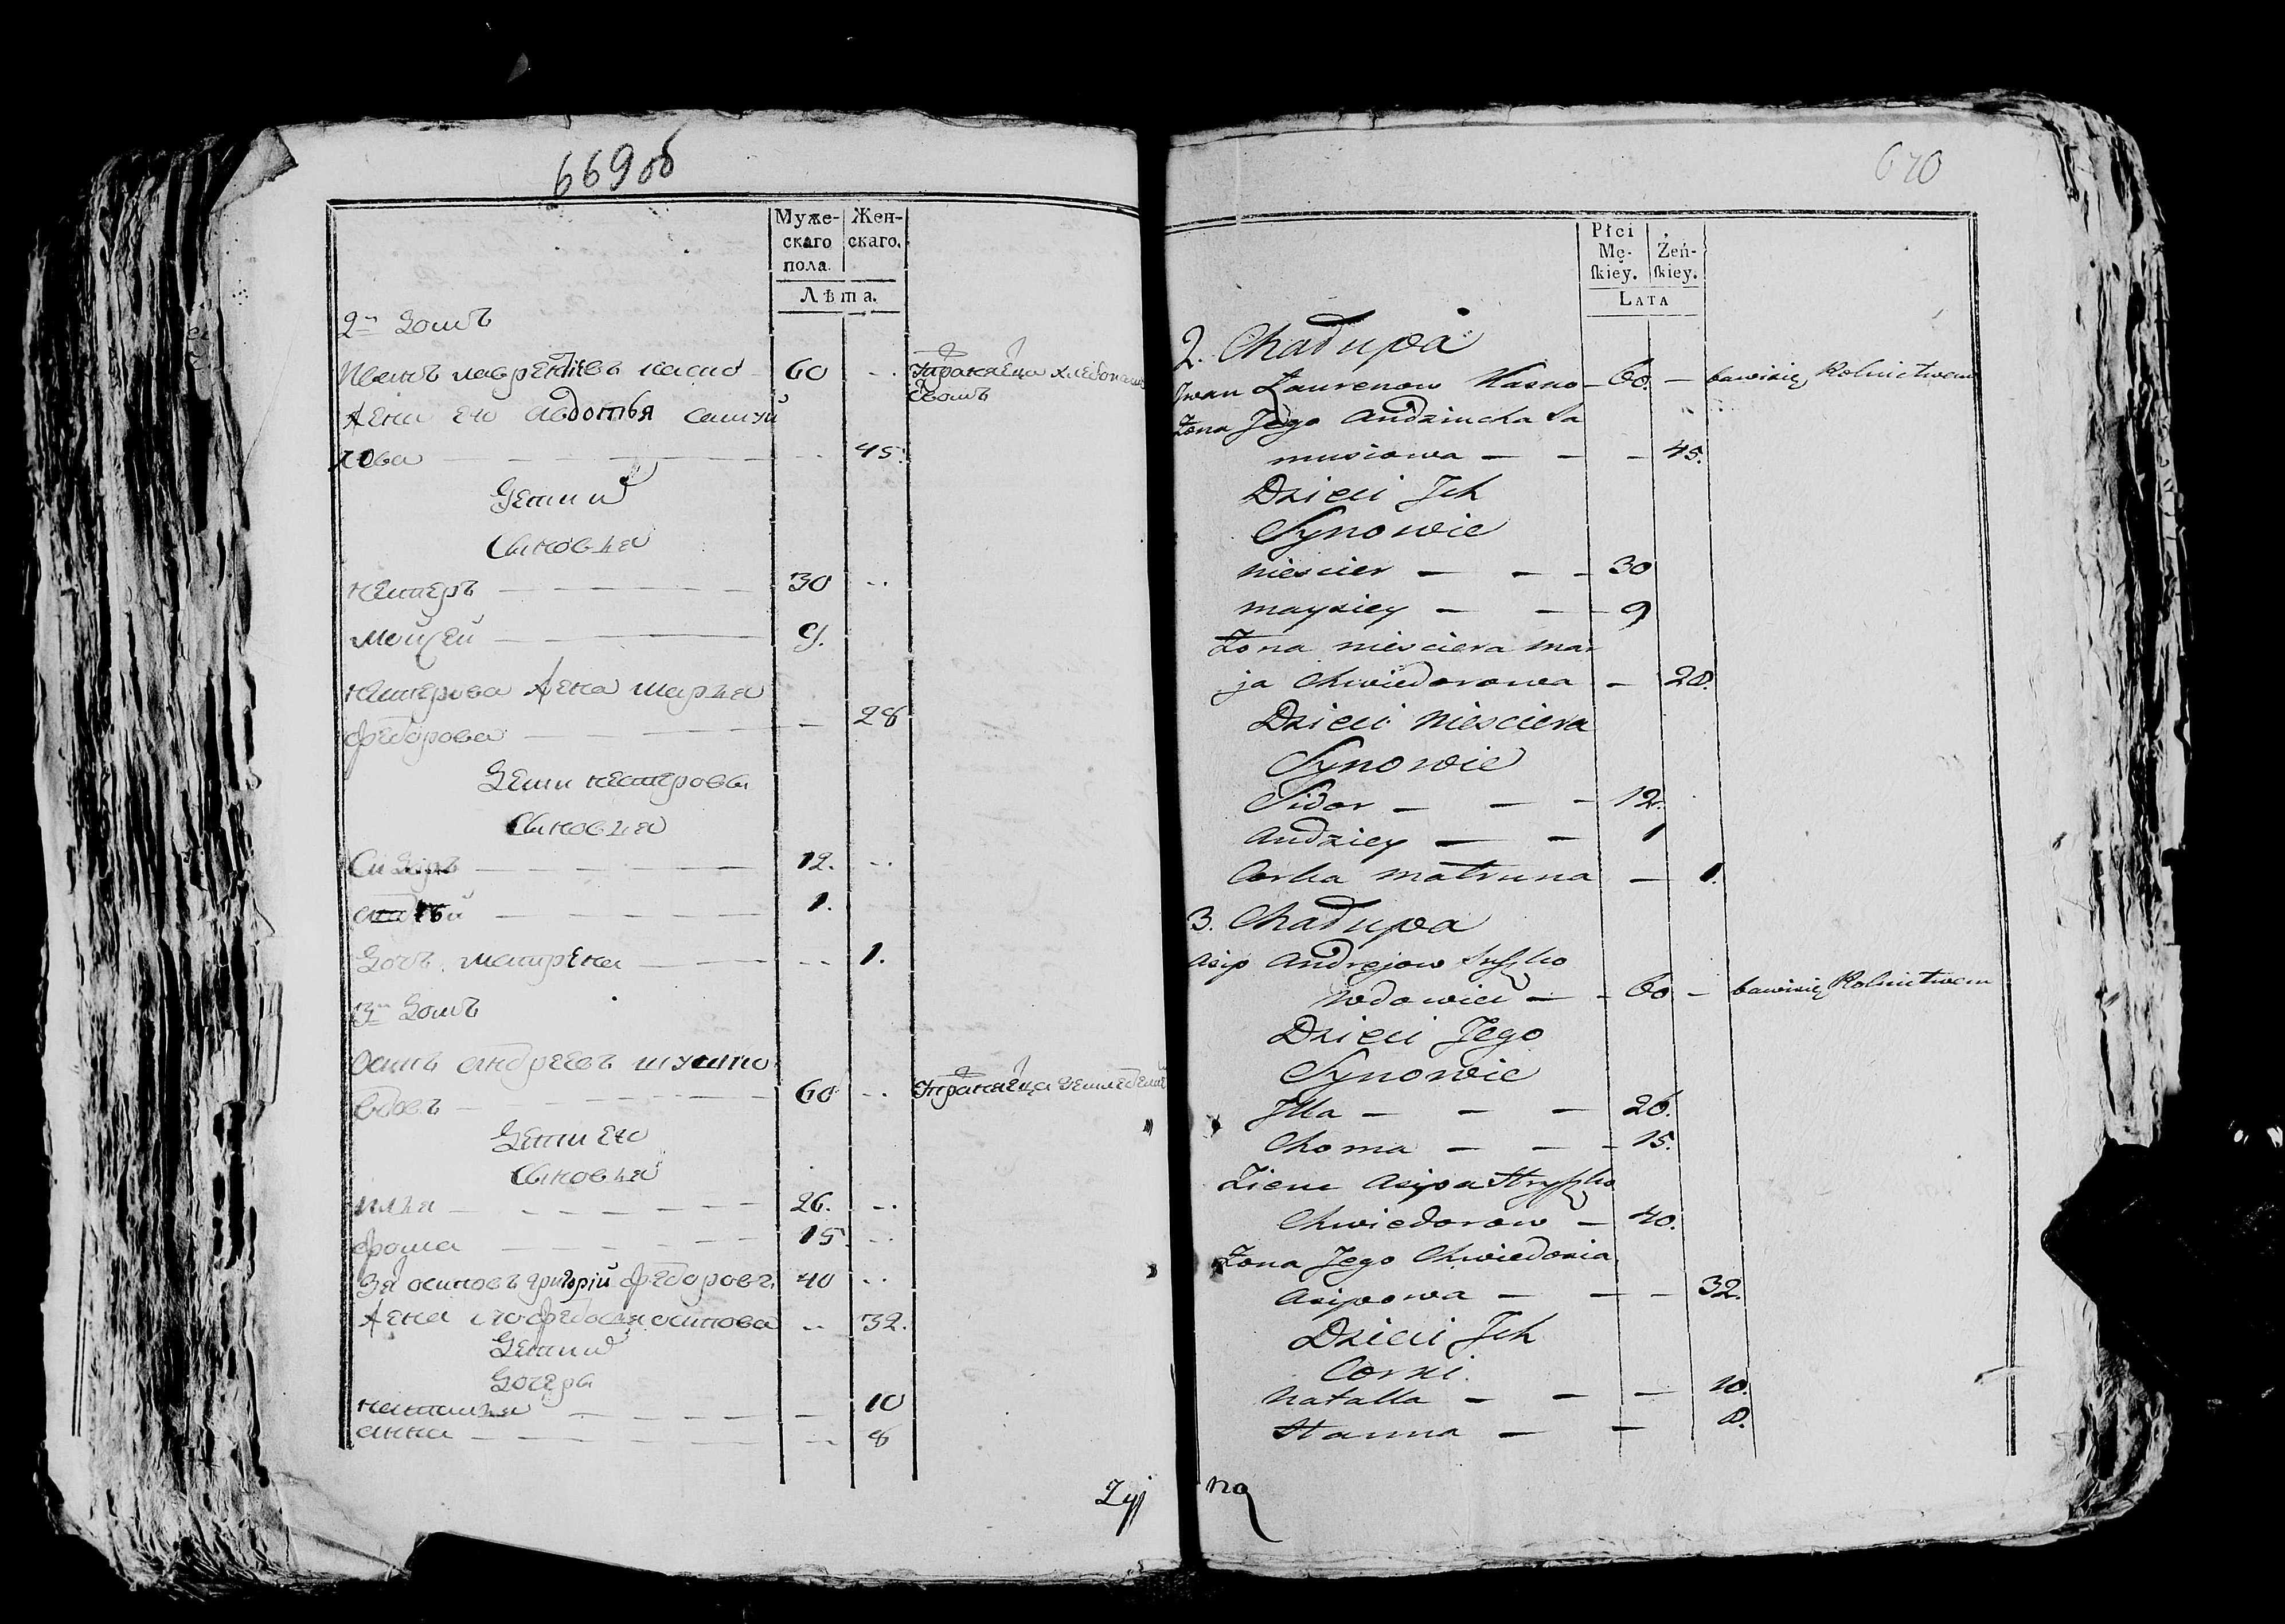 669об
Муже-
скаго
пола.
Жен-
скаго.
Лѣта.
2й Домъ
Иванъ Лаврентьевъ Касно 60
Жена его Авдотья Самуй
лова 45.
Дети и
Сыновья
Нестеръ 30
Мойсей 9.
Нестерова Жена Марья
Федорова 28
Дети Нестеровы
Сыновья
Сидоръ 12.
1.
Дочь Матрена 1.
3й Домъ
Осипъ Андреевъ Шушко
Вдовъ 60
Дети его
Сыновья
Илья 26.
Фома 15
Зя Осиповъ Григорій Федоровъ 40
Жена его Федосья Осипова 32.
Дети и
Дочери
Наталья 10
Анна 8
670
Płci
Mę-
ſkiey.
Żeń-
ſkiey.
LATA
2. Chałupa
Jwan Laurenow Kasno 60. bawisię Rolnictwem
Zona Jego Andziucha Sa
musiowa 45.
Dzieci Jch
Synowie
Niescier 30
Mayziey 9
Zona Niesciera Mar
ja Chwiedorowa 28.
Dzieci Niesciera
Synowie
Sidor 12.
Audziey 1
Corka Matruna 1.
3. Chałupa
Asip Andrejow Suszko
Wdowiec 60 bawisię Rolnictwem
Dzieci Jego
Synowie
Jlla 26.
Choma 15.
Zienc Asipa Hryszko
Chwiedorow 40.
Zona Jego Chwiedosia
Asipowa 32.
Dzieci Jch
Corki.
Natalla 10.
Hanna 8.